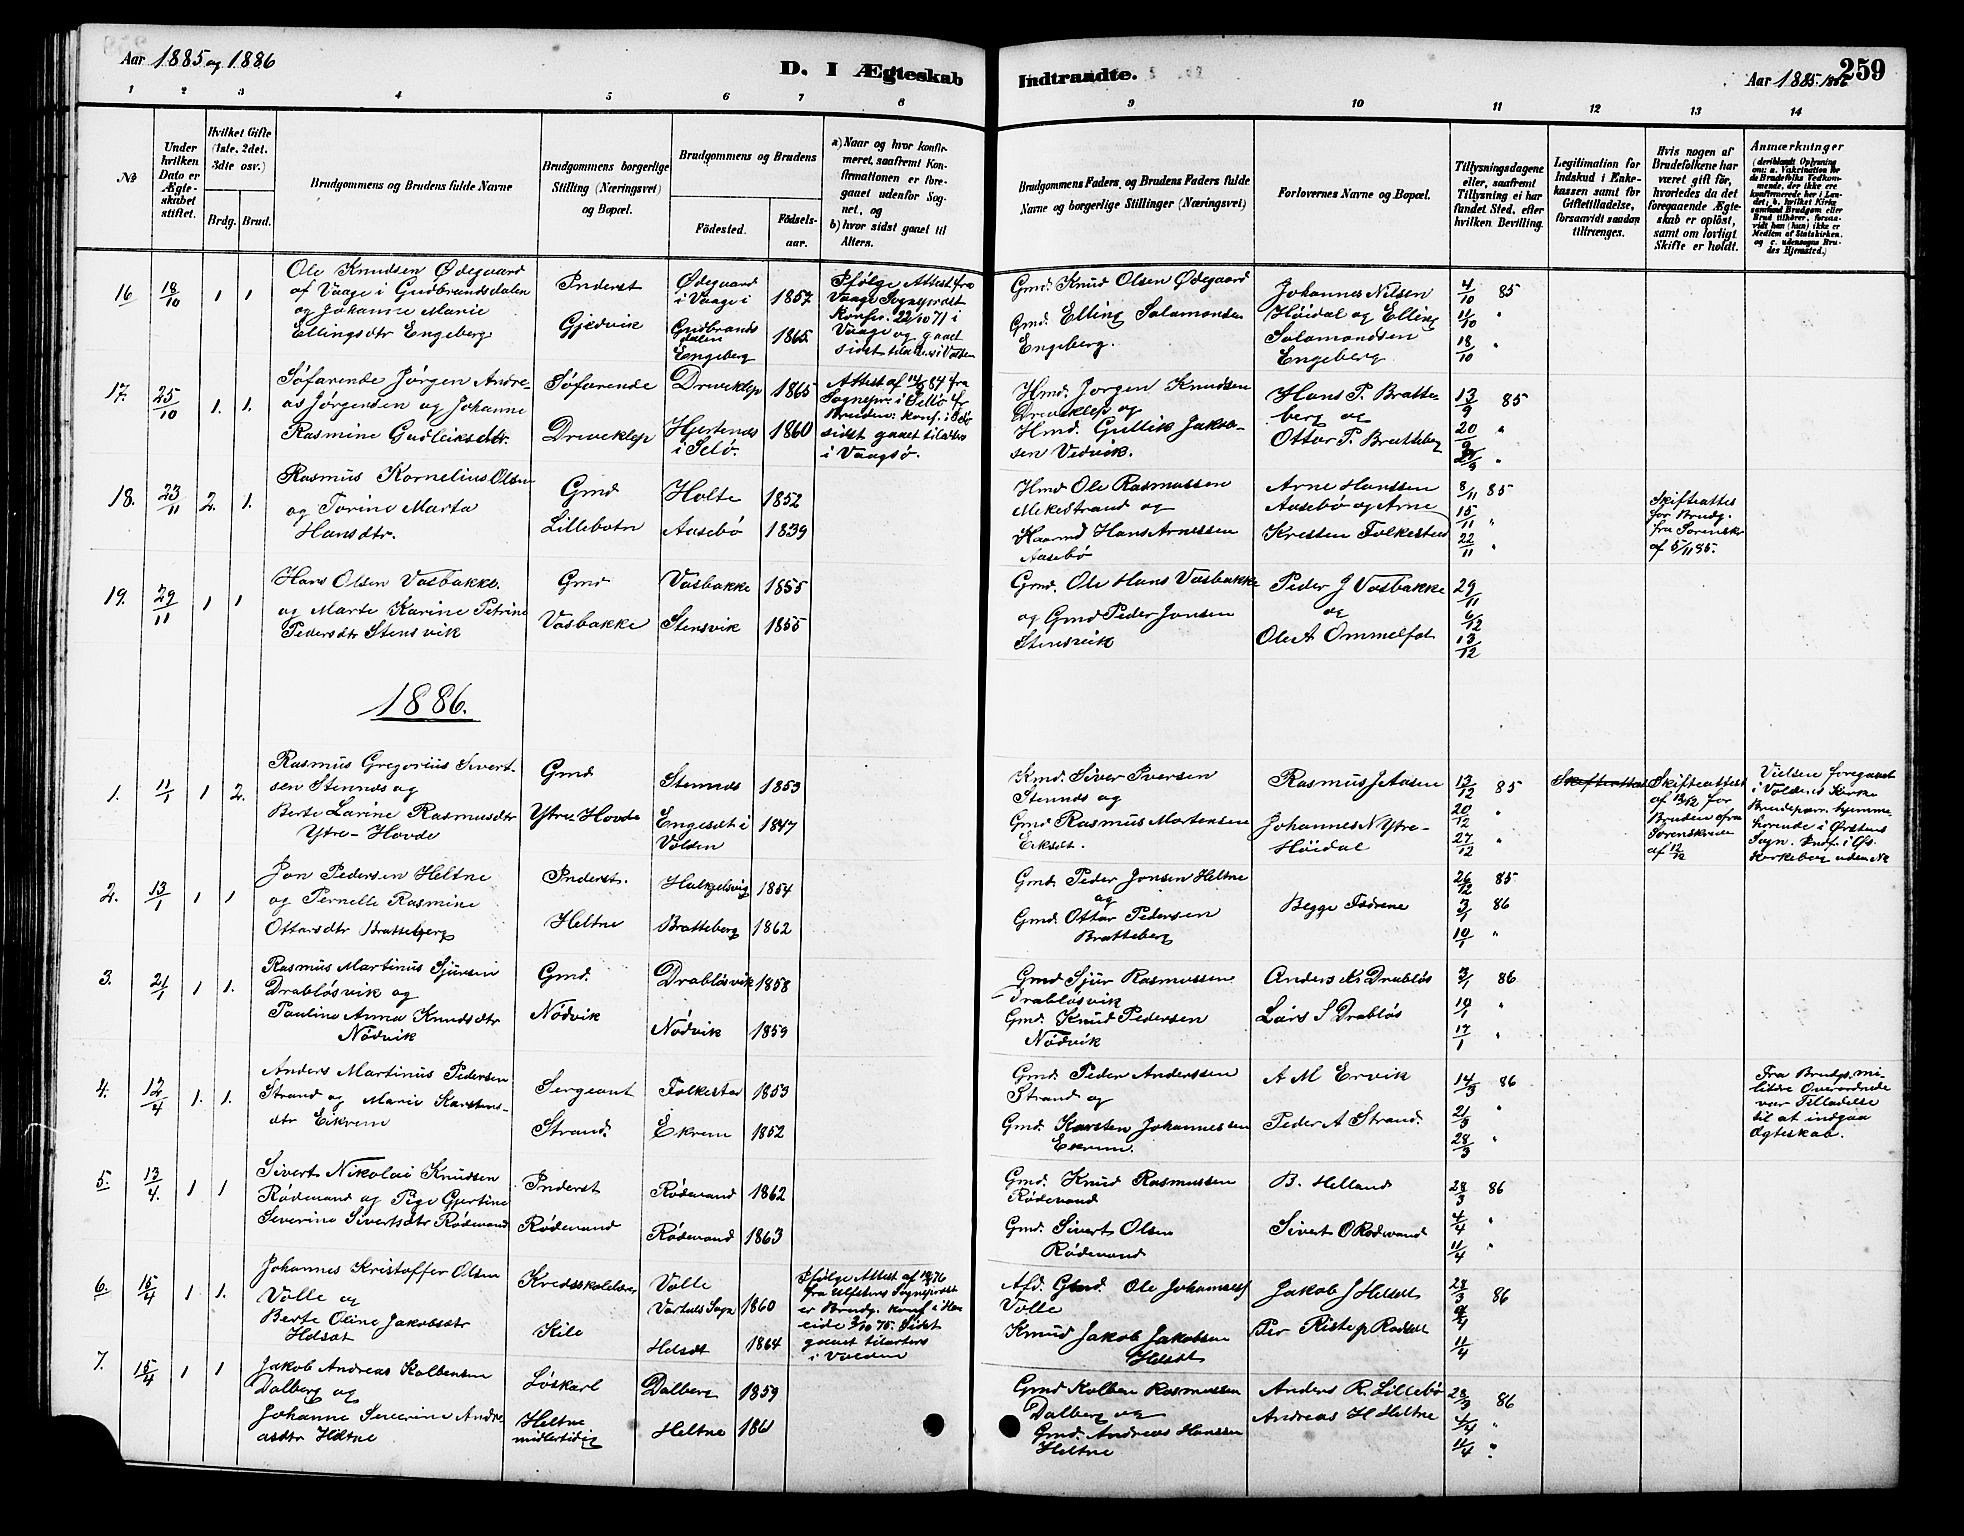 Aar 1885 og 1886
D. I Ægteskab
Indtraadte.
Aar 1885. 1886
259
1 2 3 4 5 6 7 8 9 10 11 12 13 14
No
Under hvilken Dato er Ægteskabet stiftet.
Hvilket Gifte (1ste, 2det, 3die osv.)
Brdg. Brud.
Brudgommens og Brudens fulde Navne
Brudgommens borgerlige Stilling (Næringsvei) og Bopæl.
Brudgommens og Brudens
Födested.
Födselsaar.
a) Naar og hvor konfirmeret, saafremt Konfirmationen er foregaaet udenfor Sognet, og
b) hvor sidst gaaet til Alters.
Brudgommens Faders, og Brudens Faders fulde Navne og borgerlige Stillinger (Næringsvei)
Forlovernes Navne og Bopæl.
Tillysningsdagene eller, saafremt Tillysning ei har fundet Sted, efter hvilken Bevilling.
Legitimation for Indskud i Enkekassen samt for Giftetilladelse, forsaavidt saadan tiltrænges.
Hvis nogen af Brudefolkene har været gift för, hvorledes da det foregaaende Ægteskab er oplöst, samt om lovligt Skifte er holdt.
Anmærkninger
(deriblandt Oplysning om: a. Vakcination for de Brudefolks Vedkommende, der ikke ere konfirmerede her i Landet, b. hvilket Kirkesamfund Brudgom eller Brud tilhører, forsaavidt han (hun) ikke er Medlem af Statskirken, og c. udensogns Brudes Hjemsted.)
16 18/10 1 1
Ole Knudsen Ødegaard
af Vaage i Gudbrandsdalen
og Johanne Marie
Ellingsdtr Engeberg
Inderst
Gjedvik
Ødegaard
i Vaage i
Gudbrands
dalen
Engeberg
1857
1865
Ifølge Attest fra
Vaage Sogneprest
Konfir. 22/10 71 i
Vaage og gaaet
sidst
Gmd Knud Olsen Ødegaard
Gmd. Elling Salamonsen
Engeberg.
Johannes Nilsen
Høidal og Elling
Salamondsen
Engeberg
4/10 85
11/10 "
18/10 "
17. 25/10 1. 1.
Søfarende Jørgen Andre-
as Jørgensen og Johanne
Rasmine Gudleiksdtr.
Søfarende
Driveklep
Driveklep
Hestenæs
i Selø.
1865
1860
Attest af
Sognepr. i Selø fr
Bruden: konf. i Selø
sidst gaaet tilalters
i Vaagsø.
Hmd. Jørgen Knudsen
Driveklep og
Hmd. Gullik Jako-
sen Vedvik.
Hans P. Bratte-
berg og
Ottar P. Bratteberg
13/9 85
20/9 "
27/9 "
18. 23/11 2. 1.
Rasmus Kornelius Olsen
og Torine Marta
Hansdtr.
Gmd
Lillebotn
Holte
Aasebø
1852
1839
Hmd Ole Rasmussen
Mekestrand og
Kaarmd Hans Arnessen
Aasebø
Arne Hanssen
Aasebø og Arne
Kresten Folkestad
8/11 85
15/11 "
22/11 "
Skifteattes
for Brudg.
fra Sorenskr
af 5/11 85.
19. 29/11 1 1
Hans Olsen Vasbakke
og Marte Karine Petrine
Pedersdtr Stensvik
Gmd
Vasbakke
Vasbakke
Stensvik
1855
1855
Gmd. Ole Hans Vasbakke
og Gmd Peder Jonsen
Stensvik
Peder J Vasbakke
og
Ole A Ommelfot
29/11
6/12
13/12
1886.
1. 11/1 1 2.
Rasmus Gregorius Sivert-
sen Stennæs og
Berte Larine Rasmusdtr
Ytre-Hovde
Gmd
Ytre Hovde
Stennæs
Engesæt i
Volden
1853
1847
Kmd. Siver Iversen
Stennæs og
Gmd Rasmus Martensen
Eiksæt.
Rasmus J Aasen
Johannes N Ytre-
Høidal
13/12 85
20/12 "
27/12 "
Skifteattest
Skifteattest
af for
Bruden fra
Sorenskrive
af 12/12
Vielsen foregaaet
i Voldens Kirke
Brudeparr. hjemme-
hørende i Ørstens
Sogn. Indf. i Øs.
Kirkebog uden No
2. 13/1 1 1
Jon Pedersen Heltne
og Pernelle Rasmine
Ottarsdtr Bratteberg
Inderst.
Heltne
Halkjelsvig
Bratteberg
1854
1862
Gmd. Peder Jonsen Heltne
og
Gmd Ottar Pedersen
Bratteberg
Begge Fædrene
26/12 85
3/1 86
10/1 "
3. 21/1 1 1.
Rasmus Martinus Sjursen
Drabløsvik og
Pauline Anna Knudsdtr
Nødvik
Gmd.
Nødvik
Drabløsvik
Nødvik
1858
1859
Gmd Sjur Rasmussen
Drabløsvik
Gmd. Knud Pedersen
Nødvik
Anders N Drabløs
Lars S Drabløs
3/1 86
10/1 "
17/1 "
4. 12/4 1. 1.
Anders Martinus Pedersen
Strand og Marie Karstens-
dtr Eikrem
Sergeant
Strand.
Folkestad
Ekrem
1853
1852
Gmd. Peder Anderssen
Strand og
Gmd. Karsten Johannessen
Ekrem.
A M Ervik
Peder A Strand.
14/3 86
21/3 "
28/3 "
Fra Brudg. mi-
litære Overordnede
var Tilladelse
til at indgaa
Ægteskab.
5. 13/4. 1 1
Sivert Nikolai Knudsen
Rødevand og Pige Gjertine
Severine Sivertsdtr Rødevand
Inderst
Rødevand
Rødevand
Rødevand
1862
1863
Gmd. Knud Rasmussen
Rødevand
Gmd. Sivert Olsen
Rødevand
B. Helland
Sivert O Rødevand
28/3 86
4/4 "
11/4 "
6. 15/4 1 1.
Johannes Kristoffer Olsen
Volle og
Berte Oline Jakobsdtr
Helsæt
Kredsskolelærer
Kile
Volle
Vartdals Sogn
Helsæt
1860
1864
Ifølge Attest af
fra Ulfstens Sogneprest
er Brudg. konf. i Ha-
reide 3/10 75. Sidst
gaaet tilalters
i Volden
Afd. Gmd. Ole Johannes
Volle
Kmud Jakob Jakobsen
Helsæt
Jakob J Helsæt
Per Riste p Rodset
28/3 86
4/4
11/4
7. 15/4 1 1
Jakob Andreas Kolbensen
Dalberg og
Johanne Severine Andre-
asdtr Heltne
Løskarl
Heltne
midlertidig
Dalberg
Heltne
1859
186
Gmd Kolben Rasmussen
Dalberg og
Gmd. Andreas Hanssen
Heltne
Anders R. Lillebø
Andreas H Heltne
28/3 86
4/4 "
11/4 "